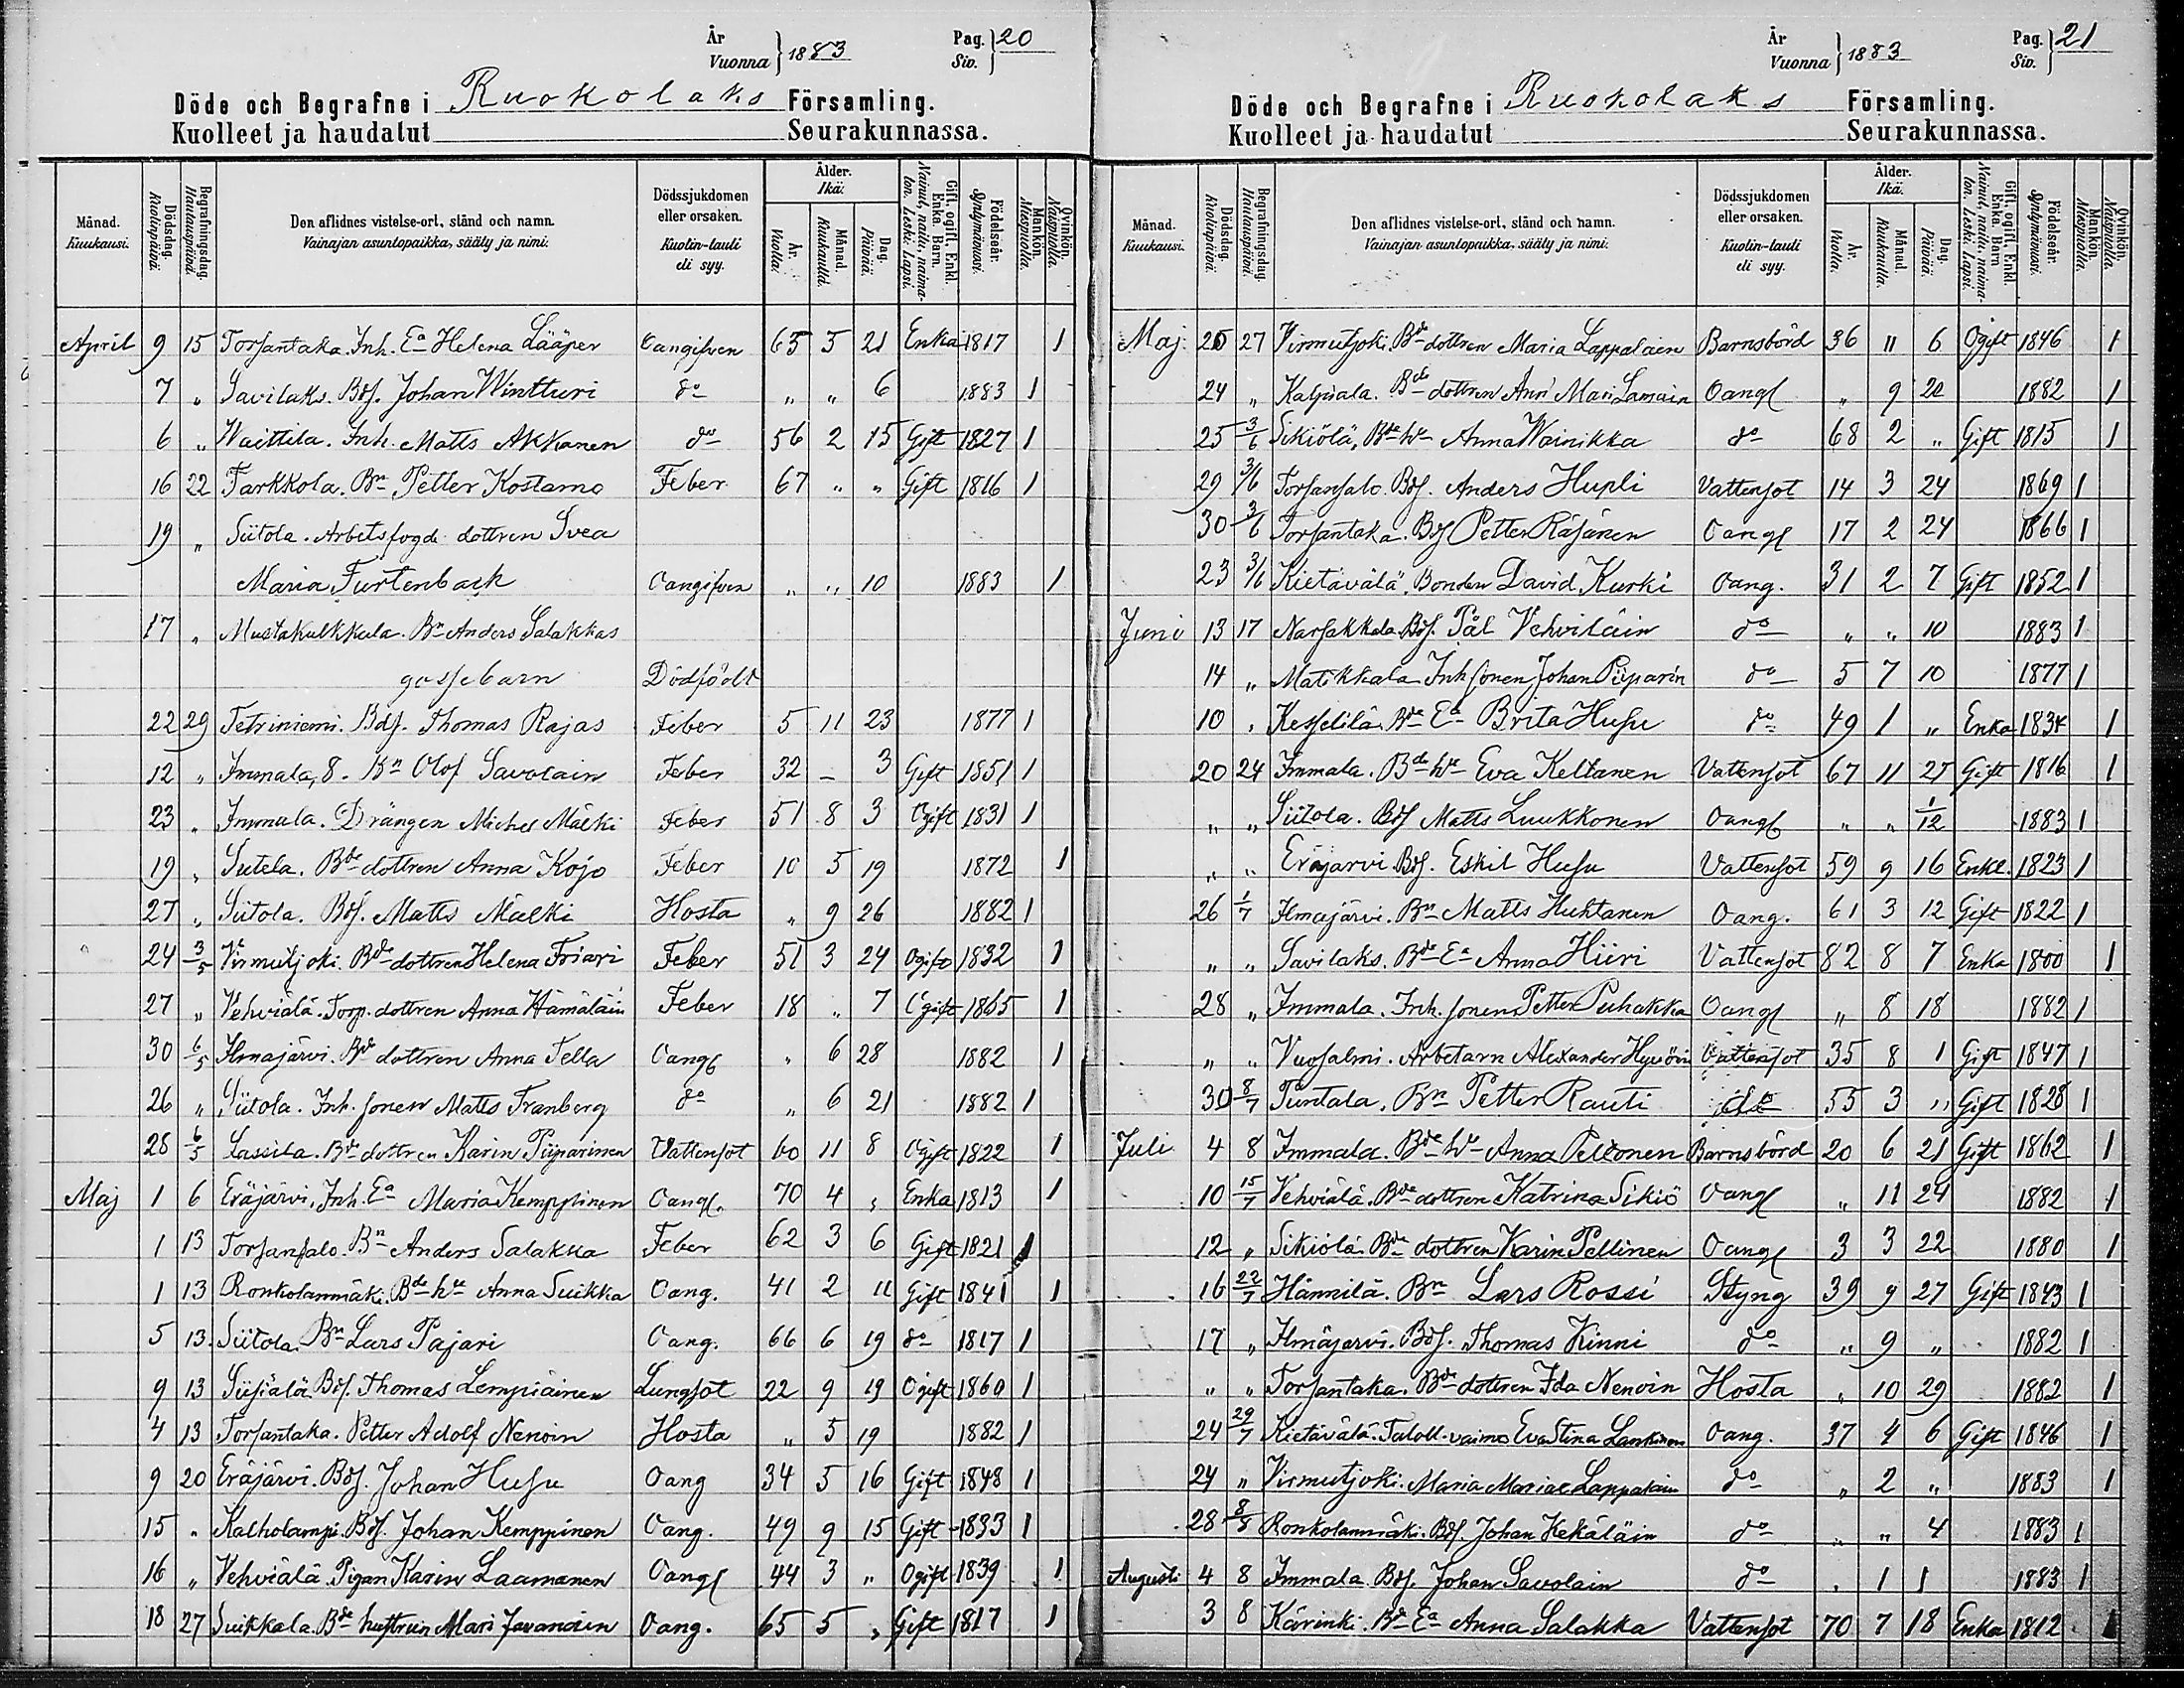 År
Vuonna } 1883
Pag. } 20
Siv.
Döde och Begrafne i Ruokolaks Församling.
Kuolleet ja haudatut Seurakunnassa.
Månad. Kuukausi. Dödsdag. Kuolinpäivä. Begrafningsdag. Hautauspäivä. Den aflidnes vistelse-ort, stånd och namn. Vainajan asuntopaikka, sääty ja nimi. Dödssjukdomen eller orsaken. Kuolin-tauti eli syy. Ålder. Ikä. År. Vuotta. Månad. Kuukautta. Dag. Päivää. Gift, ogift. Enkl. Enka. Barn. Nainut, naitu, naima-ton. Leski. Lapsi. Födelseår. Syntymävuosi. Mankön. Miespuolia. Qvinkön. Naispuolia.
April 9 15 Torsantaka. Inh. Ea Helena Lääper Oangifven 65 5 21 Enka 1817 1
7 " Savilaks. Bds. Johan Wintturi do " " 6 1883 1
6 " Waittila. Inh. Matts Akkanen do 56 2 15 Gift 1827 1
16 22 Tarkkola. Bn Petter Kostamo Feber 67 " " Gift 1816 1
19 " Siitola. Arbetsfogde dottren Svea
Maria Furtenback Oangifven " " 10 1883 1
17 " Mustakulkkula. Bn Anders Salakkas
gossebarn Dödfödt
22 29 Tetriniemi. Bds. Thomas Rajas Feber 5 11 23 1877 1
12 " Immala, 8. Bn Olof Savolain Feber 32 - 3 Gift 1851 1
23 " Immala. Drängen Michel Mälki Feber 51 8 3 Ogift 1831 1
19 " Sutela. Bde dottren Anna Kojo Feber 10 5 19 1872 1
27 " Siitola. Bds. Matts Mälki Hosta " 9 26 1882 1
24 3/5 Virmutjoki. Bde dottren Helena Friari Feber 51 3 24 Ogift 1832 1
27 " Vehviälä. Torp. dottren Anna Hämäläin Feber 18 " 7 Ogift 1865 1
30 6/5 Ilmajärvi. Bde dottren Anna Tella Oangf " 6 28 1882 1
26 " Siitola. Inh. sonen Matts Franberg do " 6 21 1882 1
28 6/5 Lassila. Bde dottren Karin Piiparinen Vattensot 60 11 8 Ogift 1822 1
Maj 1 6 Eräjärvi. Inh. Ea Maria Kemppinen Oangf. 70 4 " Enka 1813 1
1 13 Torsansalo. Bn Anders Salakka Feber 62 3 6 Gift 1821 1
1 13 Ronkolanmäki. Bde hu Anna Suikka Oang. 41 2 11 Gift 1841 1
5 13. Siitola. Bn Lars Pajari Oang. 66 6 19 do 1817 1
9 13 Siisiälä Bds. Thomas Lempiäinen Lungsot 22 9 19 Ogift 1860 1
4 13 Torsantaka. Petter Adolf Nenoin Hosta " 5 19 1882 1
9 20 Eräjärvi. Bds. Johan Husu Oang 34 5 16 Gift 1848 1
15 " Kalholampi. Bds. Johan Kemppinen Oang. 49 9 15 Gift 1833 1
16 " Vehviälä. Pigan Karin Laamanen Oangf 44 3 " Ogift 1839 1
18 27 Suikkala. Bde hustrun Mari Javanäin Oang. 65 5 " Gift 1817 1
År
Vuonna } 1883
Pag. } 21
Siv.
Döde och Begrafne i Ruokolaks Församling.
Kuolleet ja haudatut Seurakunnassa.
Månad. Kuukausi. Dödsdag. Kuolinpäivä. Begrafningsdag. Hautauspäivä. Den aflidnes vistelse-ort, stånd och namn. Vainajan asuntopaikka, sääty ja nimi. Dödssjukdomen eller orsaken. Kuolin-tauti eli syy. Ålder. Ikä. År. Vuotta. Månad. Kuukautta. Dag. Päivää. Gift, ogift. Enkl. Enka. Barn Nainut, naitu, naima-ton. Leski. Lapsi. Födelseår. Syntymävuosi. Mankön. Miespuolia. Qvinkön. Naispuolia.
Maj. 27 Virmutjoki. Bde dottren Maria Lappalaien Barnsbörd 36 " 6 Ogift 1846 1
24 " Kalpiala. Bde dottren Ann Mari Lamain Oangf " 9 1882 1
25 3/6 Sikiölä, Bde hu Anna Wainikka do 68 2 " Gift 1815 1
29 3/6 Torsansalo. Bds. Anders Hupli Vattensot 14 3 24 1869 1
30 3/6 Torsantaka. Bds Petter Räsänen Oangf 17 2 24 1866 1
23 3/6 Kietävälä. Bonden David Kurki Oang. 31 2 7 Gift 1852 1
Juni 13 17 Narsakkala. Bds. Pål Vehviläin do " " 10 1883 1
14 " Matikkala Inh sonen Johan Piiparin do 5 7 10 1877 1
10 " Kesselilä. Bde Ea Brita Husu do 49 1 " Enka 1834 1
20 24 Immala. Bde hu Eva Keltanen Vattensot 67 11 25 Gift 1816 1
" " Siitola. Bds Matts Luukkonen Oangf " " 1/12 1883 1
" " Eräjärvi Bds. Eskil Husu Vattensot 59 9 16 Enkl. 1823 1
26 1/7 Ilmajärvi. Bn Matts Huhtanen Oang. 61 3 12 Gift 1822 1
" " Savilaks. Bde Ea Anna Hiiri Vattensot 82 8 7 Enka 1800 1
28 " Immala. Inh. sonen Petter Puhakka Oangf " 8 18 1882 1
" " Vuosalmi. Arbetarn Alexander Vattensot 35 8 1 Gift 1847 1
30 8/7 Puntala. Bn Petter Rauti do 55 3 " Gift 1828 1
Juli 4 8 Immala. Bde hu Anna Peltonen Barnsbörd 20 6 21 Gift 1862 1
10 15/7 Vehviälä. Bde dottren Katrina Sikiö Oangf " 11 24 1882 1
12 " Sikiölä. Bde dottren Karin Pellinen Oangf 3 3 22 1880 1
16 22/7 Hännilä. Bn Lars Rossi Styng 39 9 27 Gift 1843 1
17 " Ilmäjärvi. Bds. Thomas Kinni do " 9 " 1882 1
" " Torsantaka. Bde dottren Ida Nenoin Hosta " 10 29 1882 1
24 29/7 Kietävälä. Taloll. vaimo Eva Stina Lankinen Oang. 37 4 6 Gift 1846 1
24 " Virmutjoki. Maria Lappalain do " 2 " 1883 1
28 8/8 Ronkolanmäki. Bds. Johan Kekäläin do " " 4 1883 1
Augusti 4 8 Immala. Bds. Johan Savolain do " 1 1 1883 1
3 8 Kärinki. Bde Ea Anna Salakka Vattensot 70 7 18 Enka 1812 1